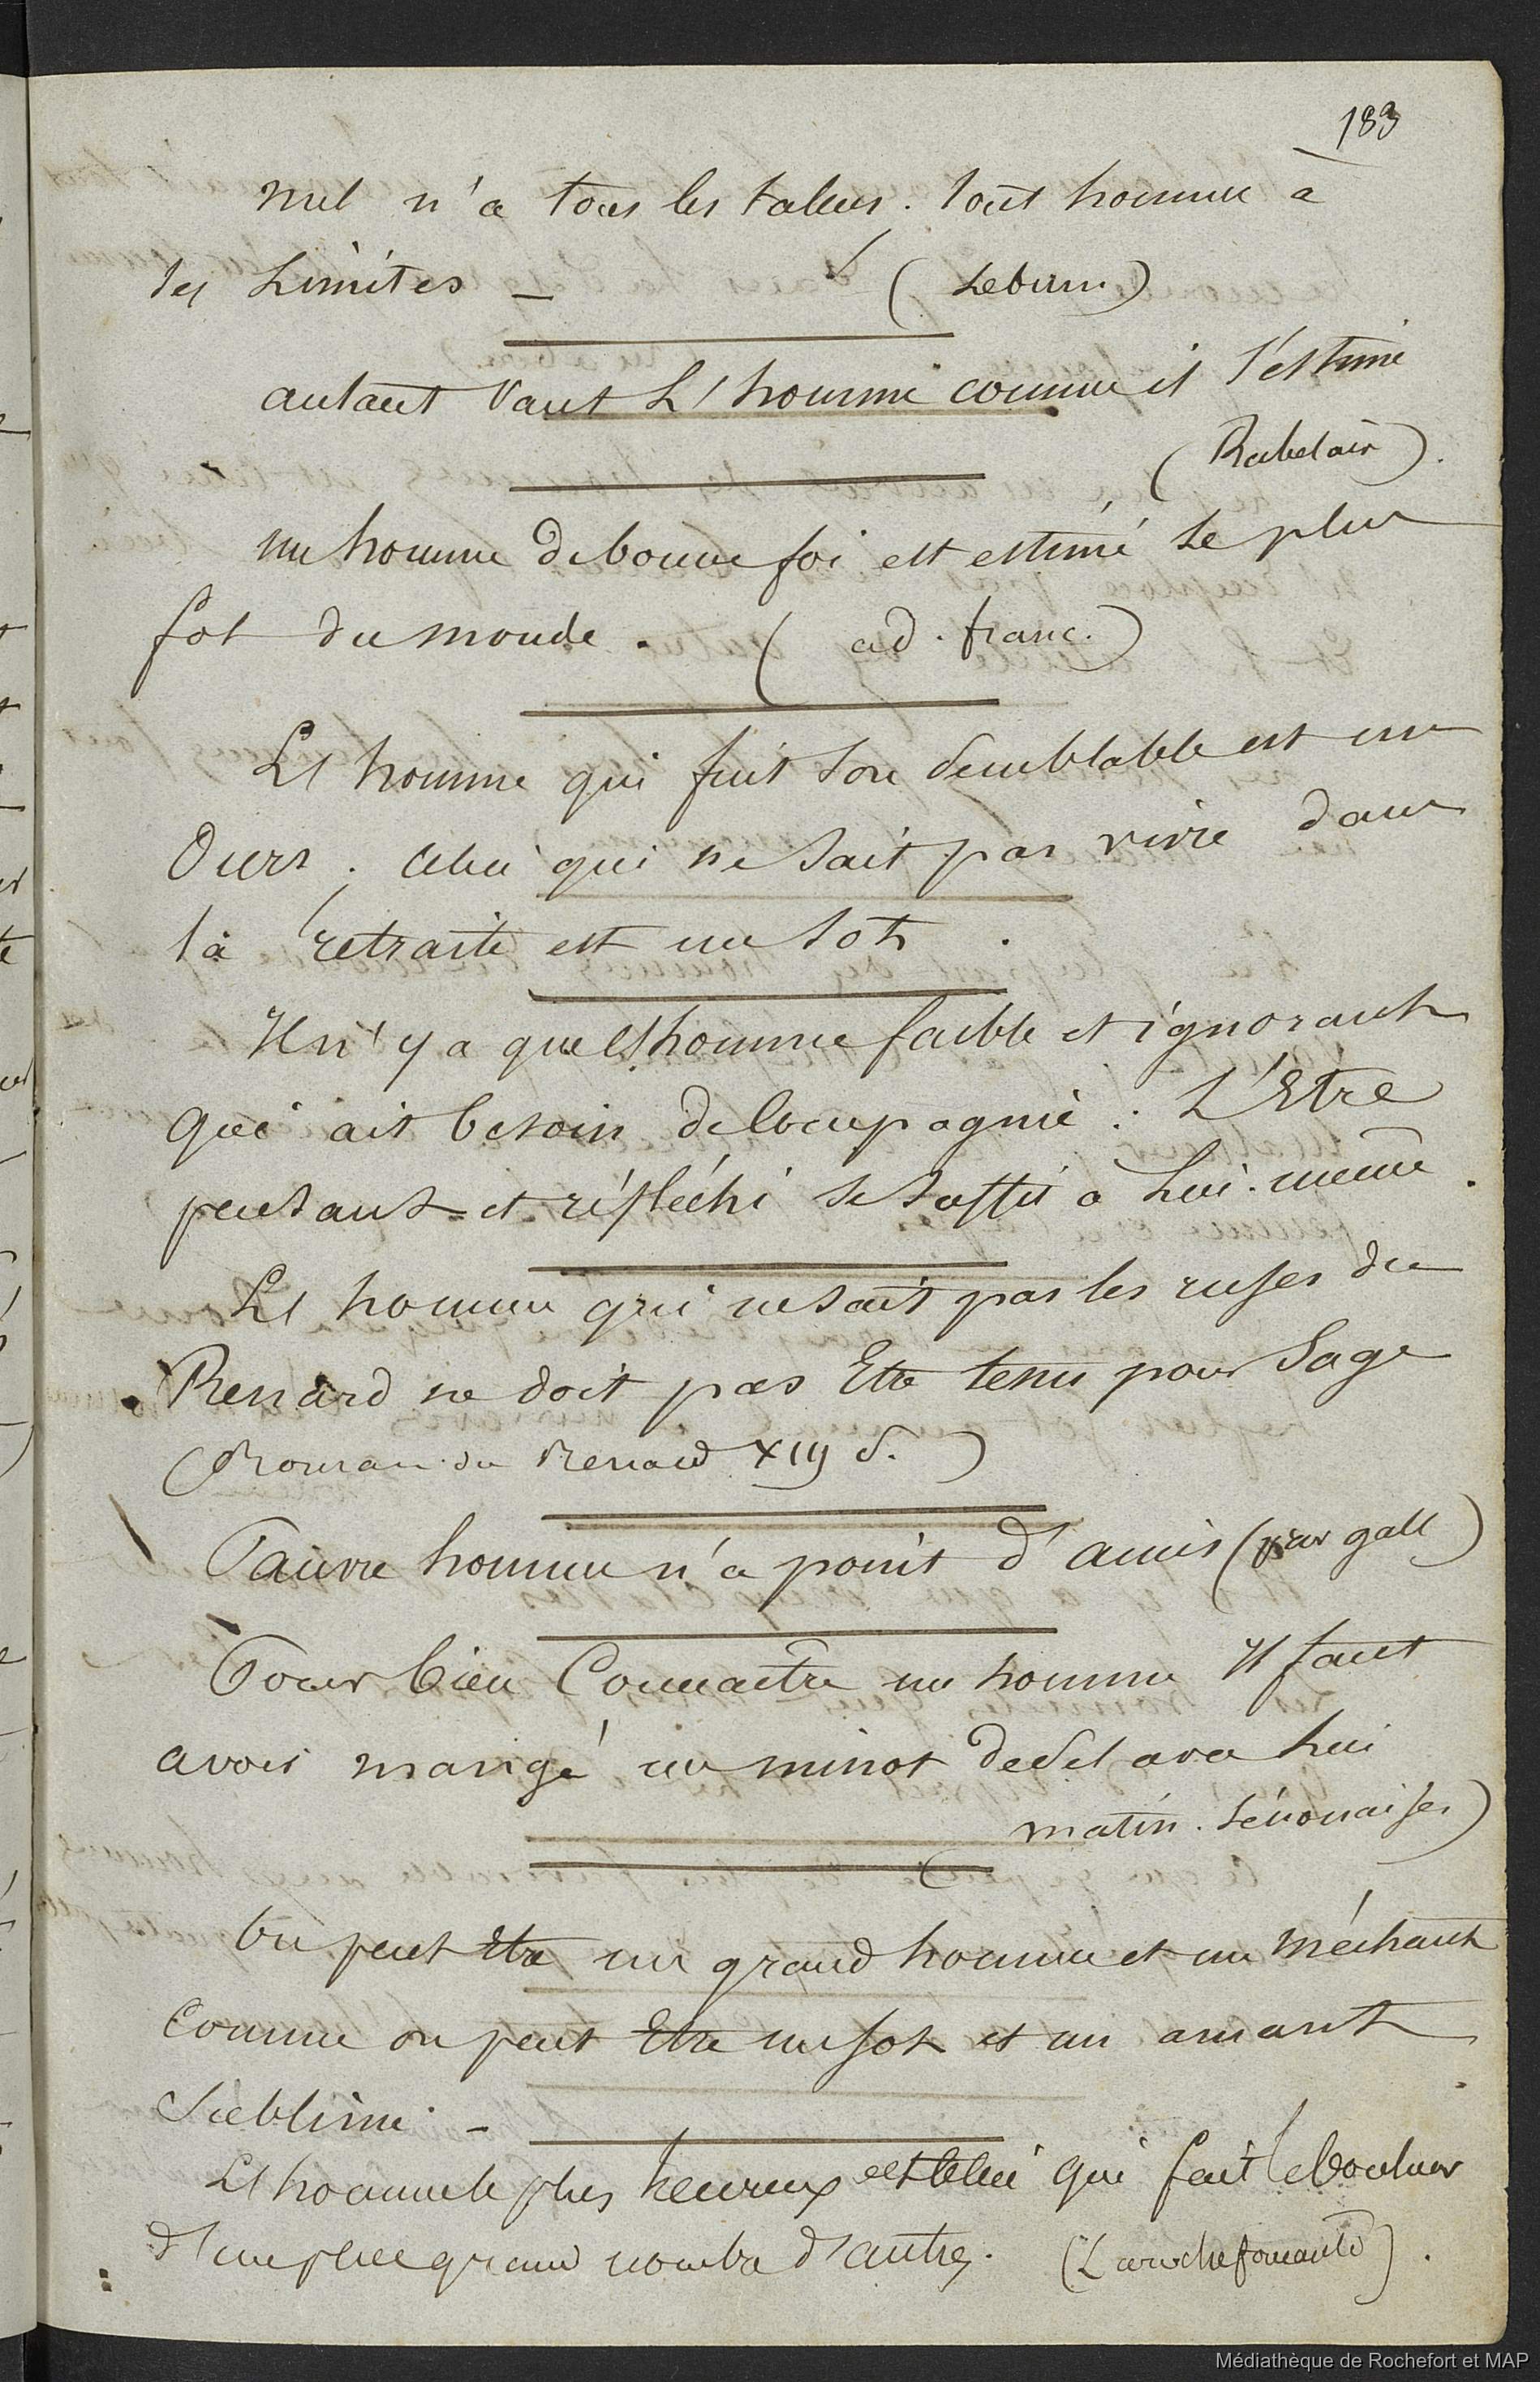 183
nul n'a tous les talens. tout homme a
ses Limites — (Lebrun)
autant vaut L'homme comme il s'estime
(Rabelais).
un homme de bonne foi est estimé le plus
sot du monde. (ad. franc.)
L'homme qui fuit son semblable est un
Ours; celui qui ne sait pas vivre dans
la retraite est un sot.
Il n'y a que l'homme faible et ignorant
qui ait besoin de Compagnie. L'Etre
pensant et réfléchi se suffit à Lui-même.
L'homme qui ne sait pas les ruses du
Renard ne doit pas Etre tenu pour Sage
(Roman du Renard XIII S.)
Pauvre homme n'a point d'amis (prov gall)
Pour bien Connaître un homme Il faut
avoir mangé un minot de sel avec Lui
(matin. Sénonaises)
On peut Etre un grand homme et un méchant
Comme on peut Etre un sot et un amant
Sublime. —
L'homme le plus heureux est celui qui fait le bonheur
d'un plus grand nombre d'autres. (Larochefoucauld).
Médiathèque de Rochefort et MAP